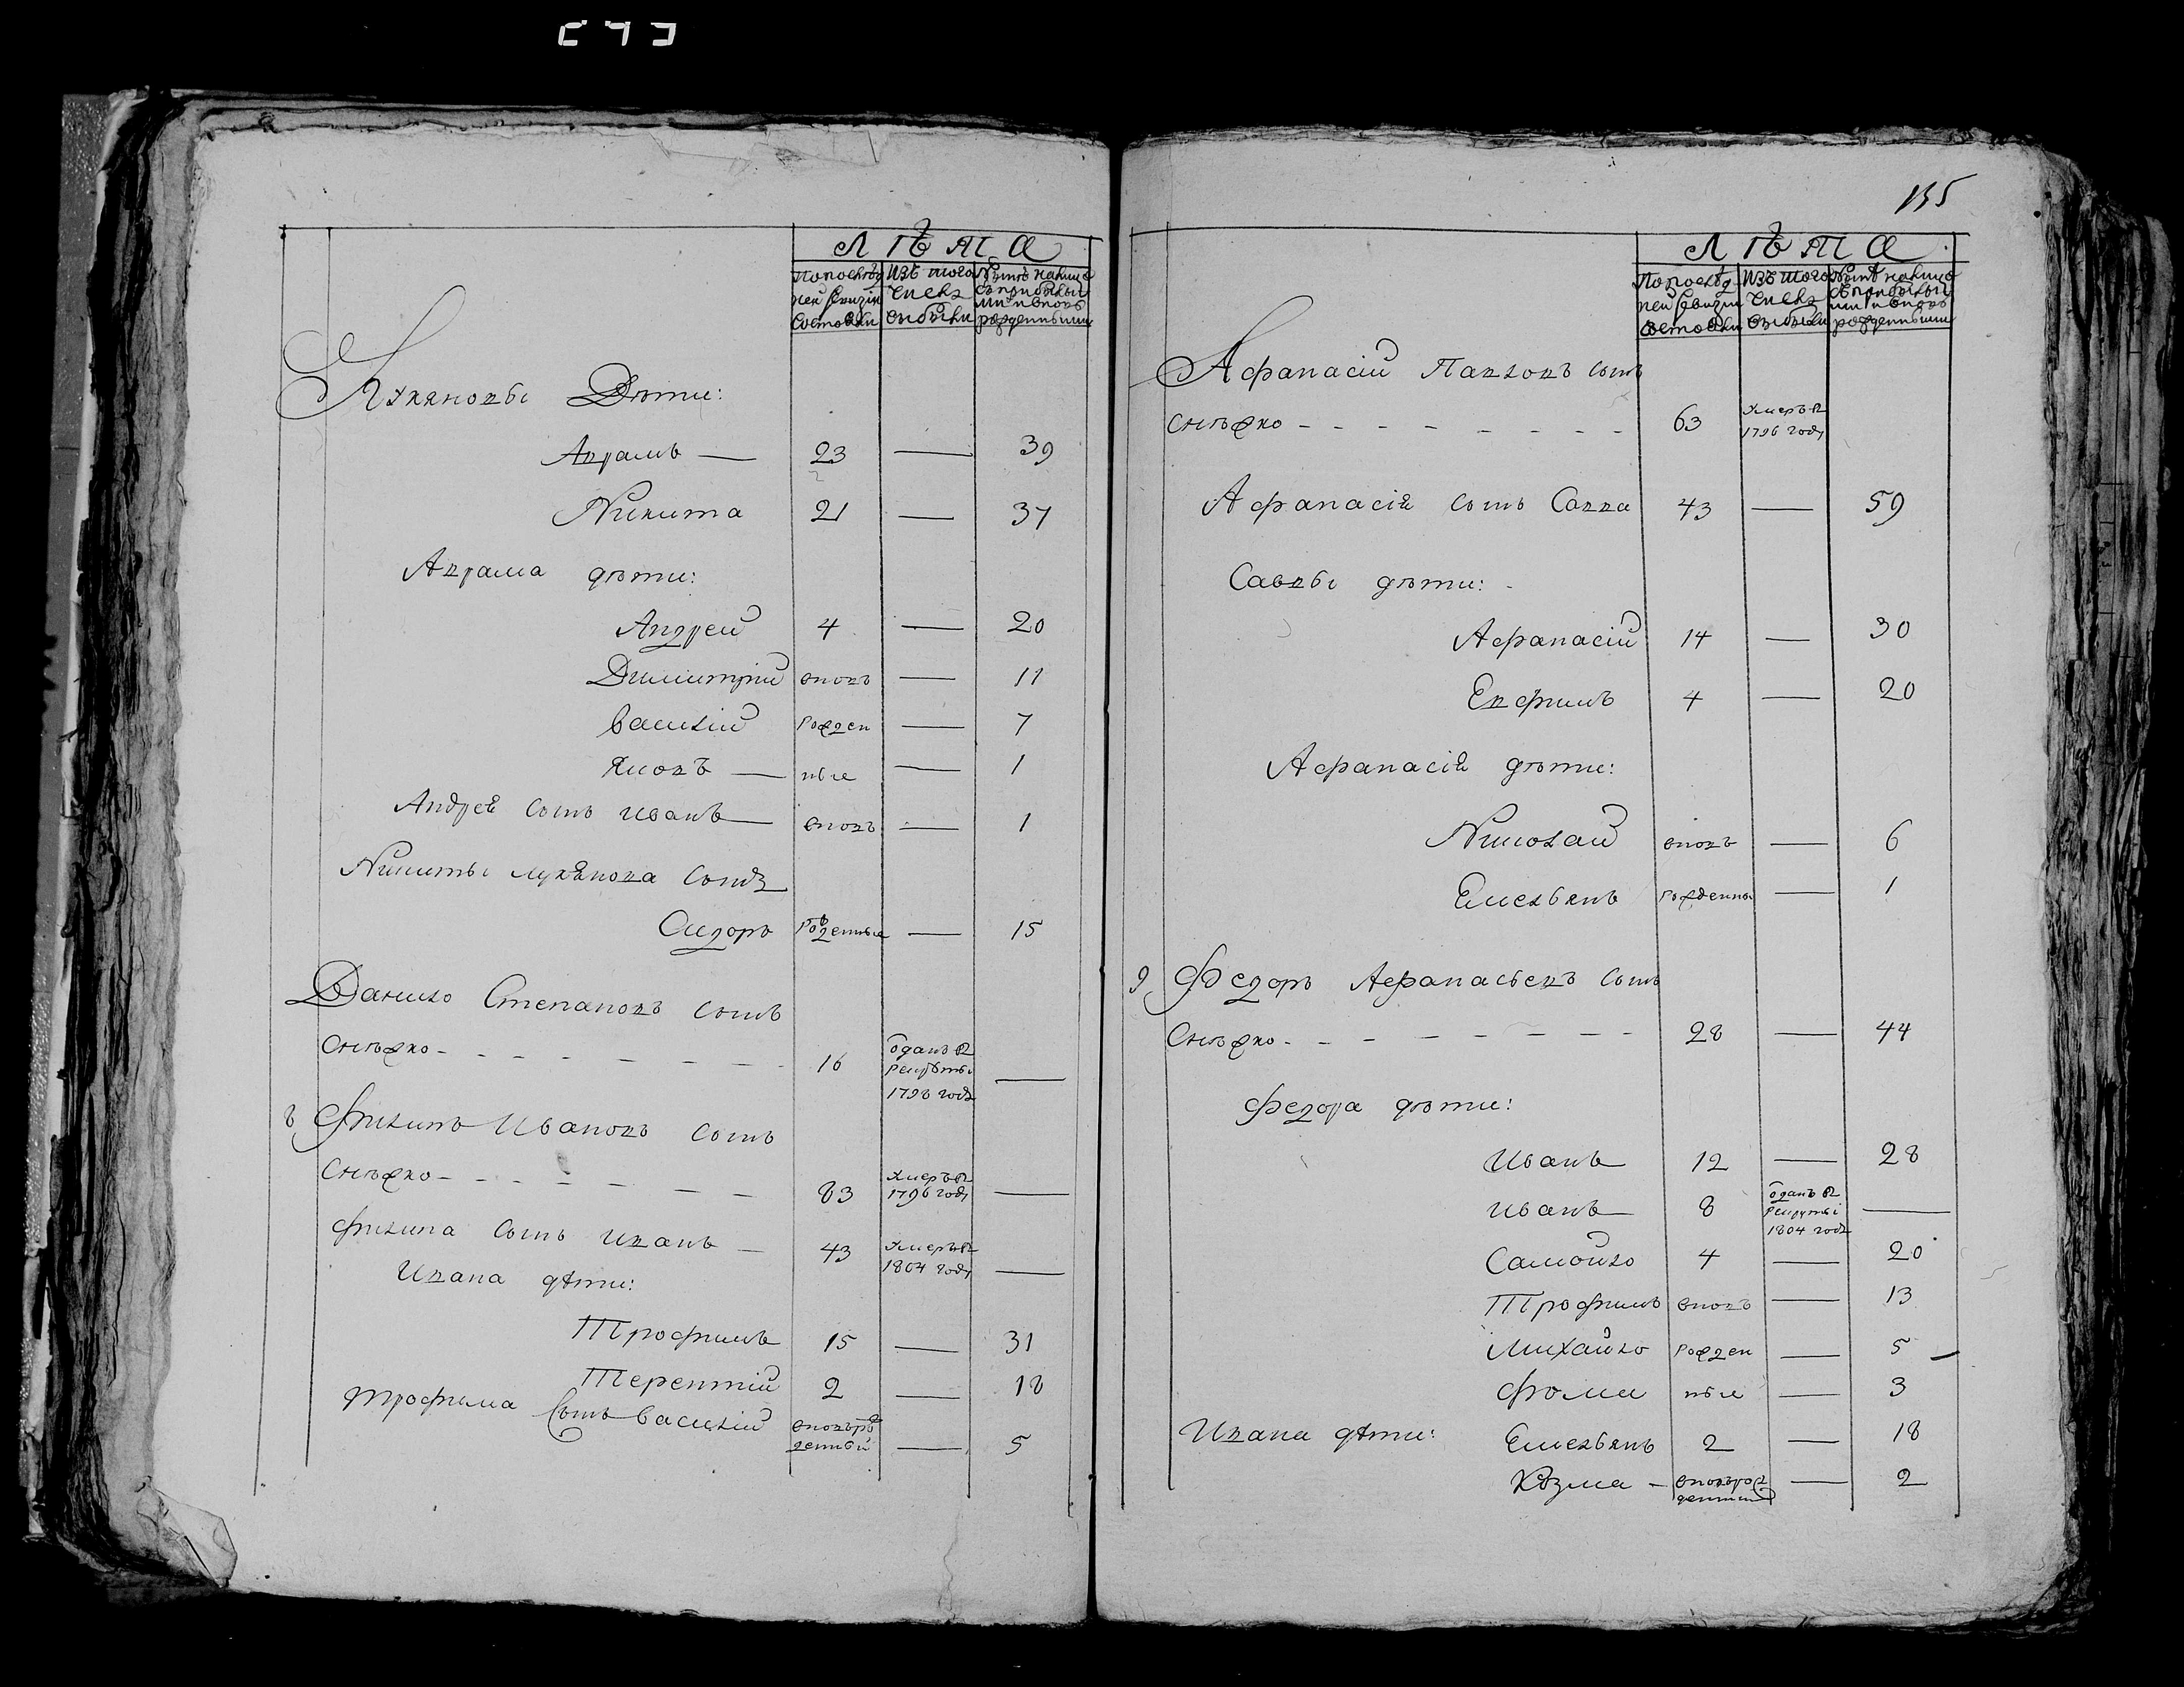 Л Ѣ Т А
По послѣд ней ревизіи состояли
изъ того числа выбыли
нынѣ на лицо съ прибылыми и вновь рожденными
Лукяновы Дѣти:
Аврамъ — 23 — 39
Никита 21 — 37
Аврама дѣти:
Андрей 4 — 20
Димитрій вновь — 11
Василій рожден — 7
Яковъ — ные — 1
Андрея сынъ Иванъ — вновь — 1
Никиты Лукянова сынъ
Сидоръ рожденные — 15
Данило Степановъ сынъ
Снѣжко - - - - - - 16 Отданъ въ рекруты 1798 года —
8 Филипъ Ивановъ сынъ
Снѣжко - - - - - - 83 умеръ въ 1796 году —
Филипа сынъ Иванъ — 43 умеръ въ 1804 году —
Ивана дѣти:
Трофимъ 15 — 31
Терентій 2 — 18
Трофима сынъ Василій вновь рожденный — 5
135
Л Ѣ Т А
По послѣд ней ревизіи состояли
изъ того числа выбыли
нынѣ на лицо съ прибылыми и вновь рожденными
Афанасій Павловъ сынъ
Снѣжко - - - - - - - - 63 умеръ въ 1796 году
Афанасія сынъ Савва 43 — 59
Саввы дѣти: -
Афанасій 14 — 30
Евфимъ 4 — 20
Афанасія дѣти:
Николай вновь — 6
Емельянъ рожденны — 1
9 Федоръ Афанасьевъ сынъ
Снѣжко - - - - - - - - 28 — 44
Федора дѣти:
Иванъ 12 — 28
Иванъ 8 Отданъ въ рекруты 1804 года —
Самойло 4 — 20
Трофимъ вновь — 13
Михайло рожден — 5
Фома ные — 3
Ивана дѣти: Емельянъ 2 — 18
Козма — вновь рожденный — 2